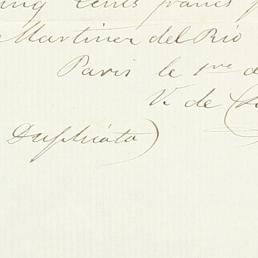 cinq cents francs
Martinez del Río
Paris le 1re d
V. de
Duplicata)